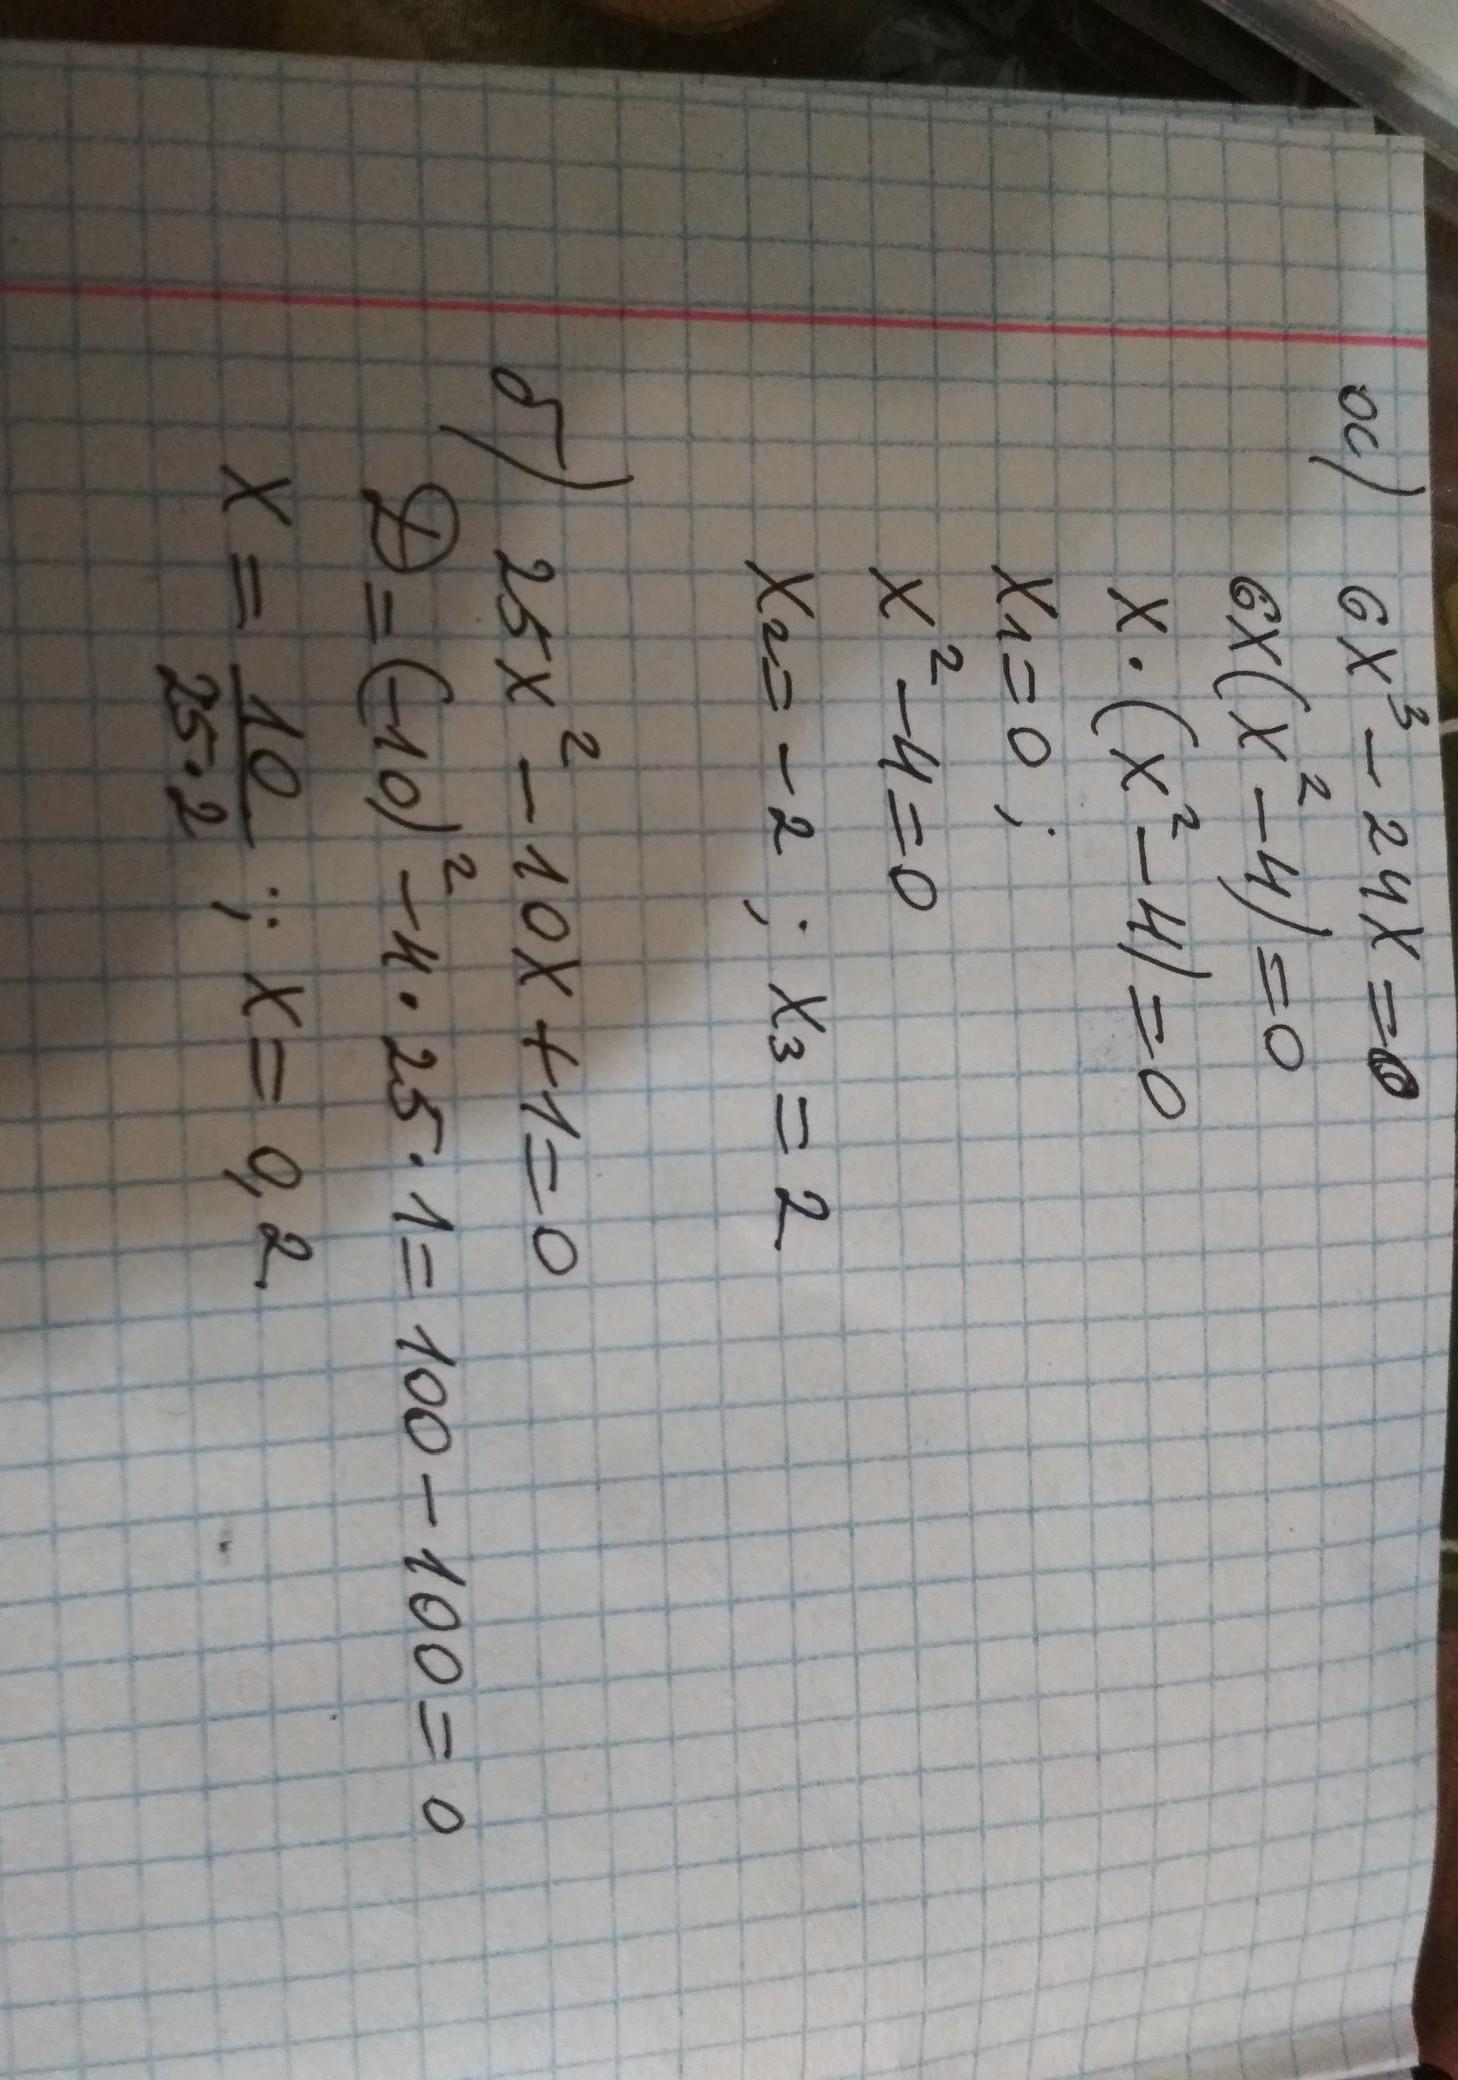 а) 6x³ - 24x = 0
6x(x² - 4) = 0
x · (x² - 4) = 0
x₁ = 0 ;
x² - 4 = 0
x₂ = -2 ; x₃ = 2
б) 25x² - 10x + 1 = 0
Д = (-10)² - 4 · 25 · 1 = 100 - 100 = 0
x = 10/25·2 ; x = 0,2